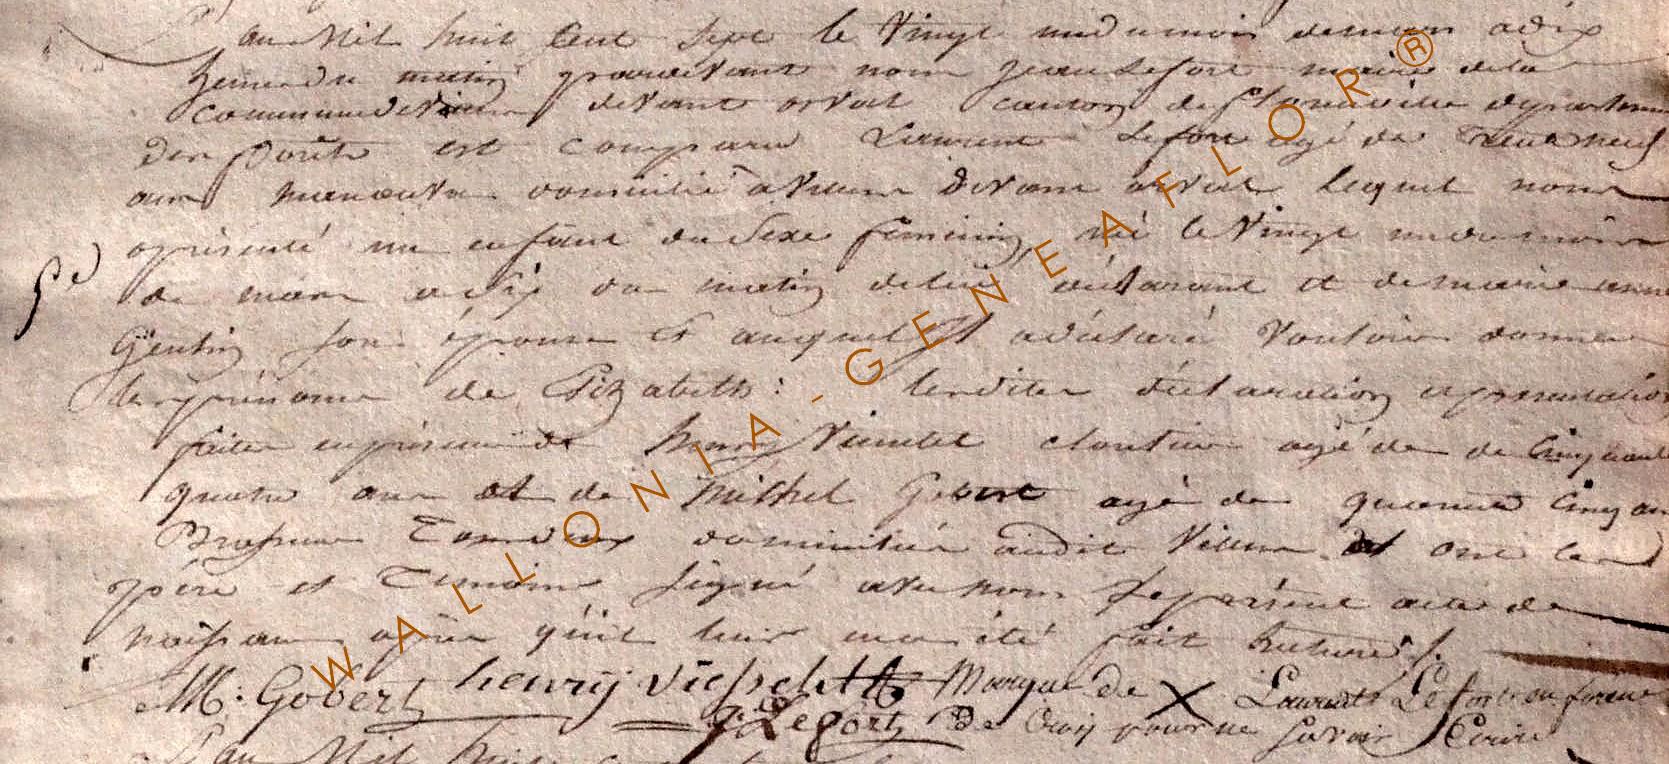 L'an Mil huit Cent Sept le Vingt un du mois de mars a dix
heures du matin pardevant nous Jean Lefort maire de la
commune de Villers devant orval canton de florenville departement
des forêts est comparu Laurent Lefort agé de Trente neuf
ans manoeuvre domicilié a Villers devant orval lequel nous
a présenté un enfant du Sexe feminin, née le Vingt un du mois
de mars a dix du matin de lui déclarant et de marie anne
Gentin son épouse et auquel Il a déclaré Vouloir donner
les prénoms de Elizabeth: lesdites déclaration et presentation
faites en présence de henry Viesselet cloutier agé de de Cinquante
quatre ans et de Michel Gobert agé de quarente Cinq ans
Brasseur Temoins domiciliés audit Villers et ont les
père et Temoins signé avec nous le présent acte de
naissance après qu'il leur en a été fait lecture.
M: Gobert henrij Viesselet Marque de X Laurent Lefort en forme
J: Lefort De Croij pour ne Savoir Ecrire
L'an Mil huit
WALLONIA-GENEAFLOR®